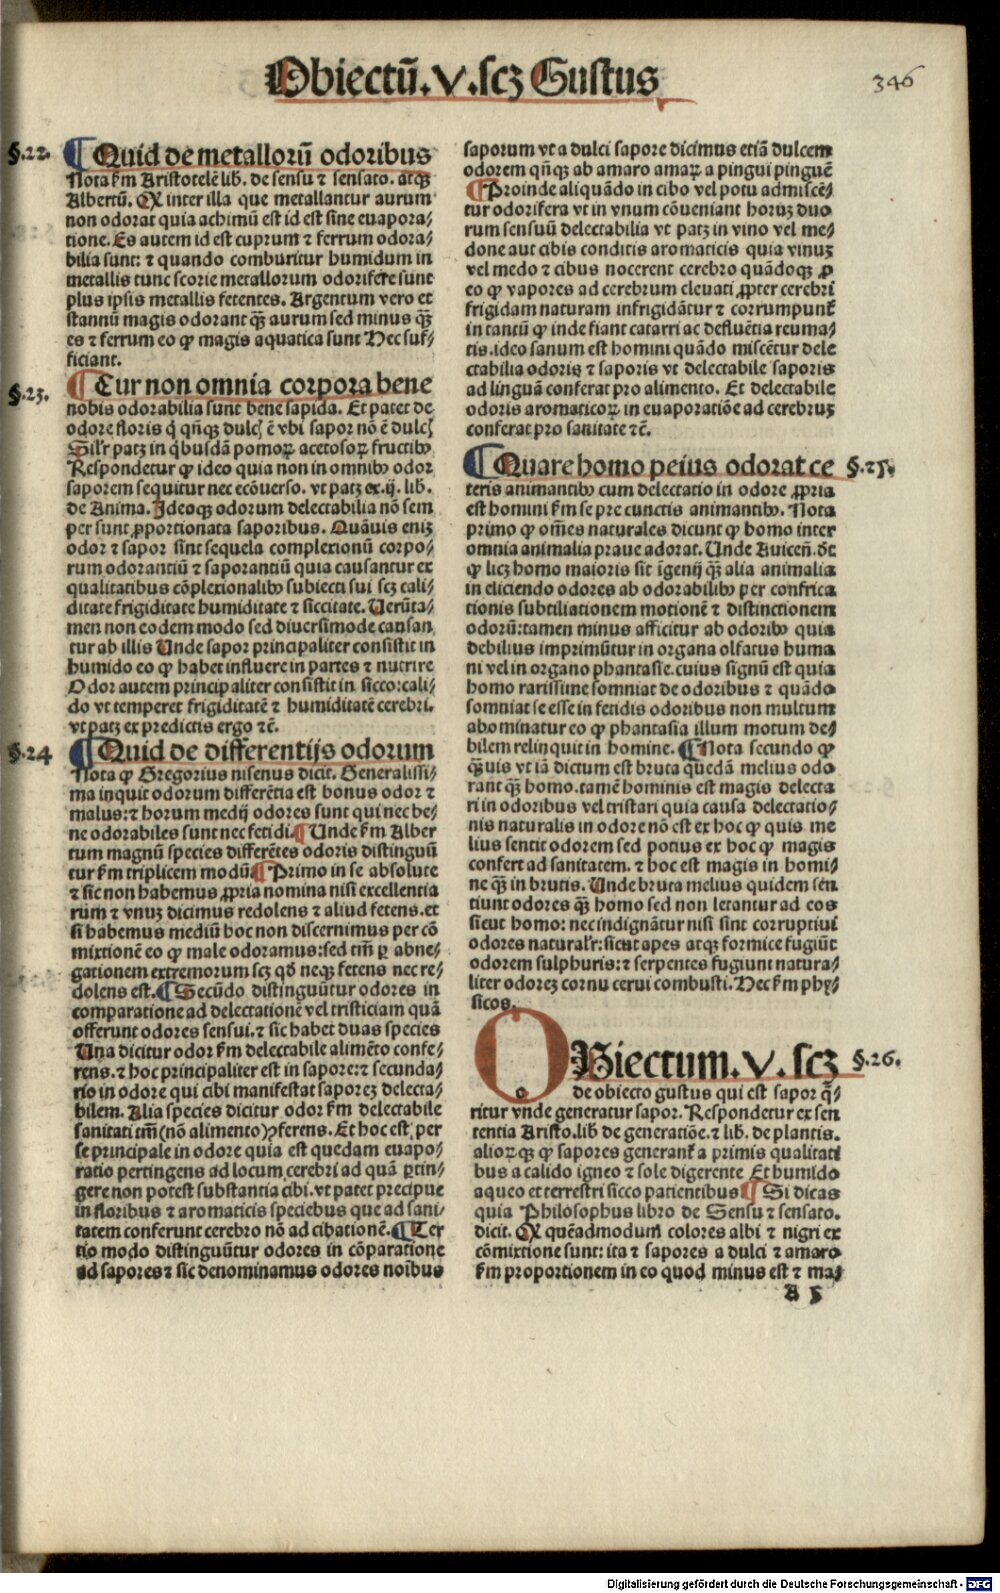 Obiectū.V.scȝ Gustus
346
§.22.
¶ Quid de metallorū odoribus
Nota ẜm Aristotelē lib. de sensu ⁊ sensato. atqȝ
Albertū. Qꝫ inter illa que metallantur aurum
non odorat quia achimū est id est sine euapora/
tione. Es autem id est cuprum ⁊ ferrum odora/
bilia sunt: ⁊ quando comburitur humidum in
metallis tunc scorie metallorum odorifere sunt
plus ipsis metallis fetentes. Argentum vero et
stannū magis odorant qȝ̄ aurum sed minus qȝ̄
es ⁊ ferrum eo ꝙ magis aquatica sunt Hec suf/
ficiant.
§.23.
¶ Cur non omnia corpora bene
nobis odorabilia sunt bene sapida. Et patet de
odore floris q̇ qn̄qȝ dulcꝭ ē vbi sapor nō ē dulcꝭ
Silr̄ patȝ in q̇busdā pomoꝝ acetosoꝝ fructibꝰ
Respondetur ꝙ ideo quia non in omnibꝰ odor
saporem sequitur nec ecōuerso. vt patȝ ex.ij. lib.
de Anima. Ideoqȝ odorum delectabilia nō sem
per sunt ꝓportionata saporibus. Quāuis eniȝ
odor ⁊ sapor sint sequela complexionū corpo/
rum odorantiū ⁊ saporantiū quia causantur ex
qualitatibus cōplexionalibꝰ subiecti sui scȝ cali/
ditate frigiditate humiditate ⁊ siccitate. Uerūta/
men non eodem modo sed diuersimode causan
tur ab illis Unde sapor principaliter consistit in
humido eo ꝙ habet influere in partes ⁊ nutrire
Odor autem principaliter consistit in sicco: cali/
do vt temperet frigiditatē ⁊ humiditatē cerebri.
vt patȝ ex predictis ergo ⁊c̄.
§.24
¶ Quid de differentijs odorum
Nota ꝙ Gregorius nisenus dicit. Generalissi/
ma inquit odorum differētia est bonus odor ⁊
malus: ⁊ horum medij odores sunt qui nec be/
ne odorabiles sunt nec fetidi. ¶ Unde ẜm Alber
tum magnū species differētes odoris distinguū
tur ẜm triplicem modū. ¶ Primo in se absolute
⁊ sic non habemus ꝓpria nomina nisi excellentia
rum ⁊ vnuȝ dicimus redolens ⁊ aliud fetens. et
si habemus mediū hoc non discernimus per cō
mixtionē eo ꝙ male odoramus: sed tm̄ ꝑ abne/
gationem extremorum scȝ qd̄ neqȝ fetens nec re/
dolens est. ¶ Secūdo distinguūtur odores in
comparatione ad delectationē vel tristiciam quā
offerunt odores sensui. ⁊ sic habet duas species
Una dicitur odor ẜm delectabile alimēto confe/
rens. ⁊ hoc principaliter est in sapore: ⁊ secunda/
rio in odore qui cibi manifestat saporeȝ delecta/
bilem. Alia species dicitur odor ẜm delectabile
sanitati tm̄ (nō alimento) ꝯferens. Et hoc est per
se principale in odore quia est quedam euapo/
ratio pertingens ad locum cerebri ad quā ꝑtin/
gere non potest substantia cibi. vt patet precipue
in floribus ⁊ aromaticis speciebus que ad sani/
tatem conferunt cerebro nō ad cibationē. ¶ Ter
tio modo distinguūtur odores in cōparatione
ad sapores ⁊ sic denominamus odores noībus
saporum vt a dulci sapore dicimus etiā dulcem
odorem qn̄qȝ ab amaro amaꝝ a pingui pinguē
¶ Proinde aliquādo in cibo vel potu admiscē/
tur odorifera vt in vnum cōueniant horuȝ duo
rum sensuū delectabilia vt patȝ in vino vel me/
done aut cibis conditis aromaticis quia vinuȝ
vel medo ⁊ cibus nocerent cerebro quādoqȝ ꝓ
eo ꝙ vapores ad cerebrum eleuati ꝓpter cerebri
frigidam naturam infrigidātur ⁊ corrumpunt̄
in tantū ꝙ inde fiant catarri ac defluētia reuma/
tis. ideo sanum est homini quādo miscētur dele
ctabilia odoris ⁊ saporis vt delectabile saporis
ad linguā conferat pro alimento. Et delectabile
odoris aromaticoꝝ in euaporatiōe ad cerebruȝ
conferat pro sanitate ⁊c̄.
¶ Quare homo peius odorat ce
§.25.
teris animantibꝰ cum delectatio in odore ꝓpria
est homini ẜm se pre cunctis animantibꝰ. Nota
primo ꝙ om̄es naturales dicunt ꝙ homo inter
omnia animalia praue adorat. Unde Auicen̄. dt̄
ꝙ licȝ homo maioris sit īgenij qȝ̄ alia animalia
in eliciendo odores ab odorabilibꝰ per confrica
tionis subtiliationem motionē ⁊ distinctionem
odorū: tamen minus afficitur ab odoribꝰ quia
debilius imprimūtur in organa olfatus huma
ni vel in organo phantasie. cuius signū est quia
homo rarissime somniat de odoribus ⁊ quādo
somniat se esse in fetidis odoribus non multum
abominatur eo ꝙ phantasia illum motum de/
bilem relinquit in homine. ¶ Nota secundo ꝙ
qȝ̄uis vt iā dictum est bruta quedā melius odo
rant qȝ̄ homo. tamē hominis est magis delecta
ri in odoribus vel tristari quia causa delectatio/
nis naturalis in odore nō est ex hoc ꝙ quis me
lius sentit odorem sed potius ex hoc ꝙ magis
confert ad sanitatem. ⁊ hoc est magis in homi/
ne qȝ̄ in brutis. Unde bruta melius quidem sen
tiunt odores qȝ̄ homo sed non letantur ad eos
sicut homo: nec indignātur nisi sint corruptiui
odores naturalr̄: sicut apes atqȝ formice fugiūt
odorem sulphuris: ⁊ serpentes fugiunt natura/
liter odoreȝ cornu cerui combusti. Hec ẜm phy/
sicos.
OBiectum.V.scȝ
§.26.
de obiecto gustus qui est sapor q̄/
ritur vnde generatur sapor. Respondetur ex sen
tentia Aristo. lib̄ de generatiōe. ⁊ lib̄. de plantis.
alioꝝqȝ ꝙ sapores generant̄ a primis qualitati
bus a calido igneo ⁊ sole digerente Et humido
aqueo et terrestri sicco patientibus ¶ Si dicas
quia Philosophus libro de Sensu ⁊ sensato.
dicit. Qꝫ quēadmodum colores albi ⁊ nigri ex
cōmixtione sunt: ita ⁊ sapores a dulci ⁊ amaro
ẜm proportionem in eo quod minus est ⁊ ma/
A 5
Digitalisierung gefördert durch die Deutsche Forschungsgemeinschaft - DFG